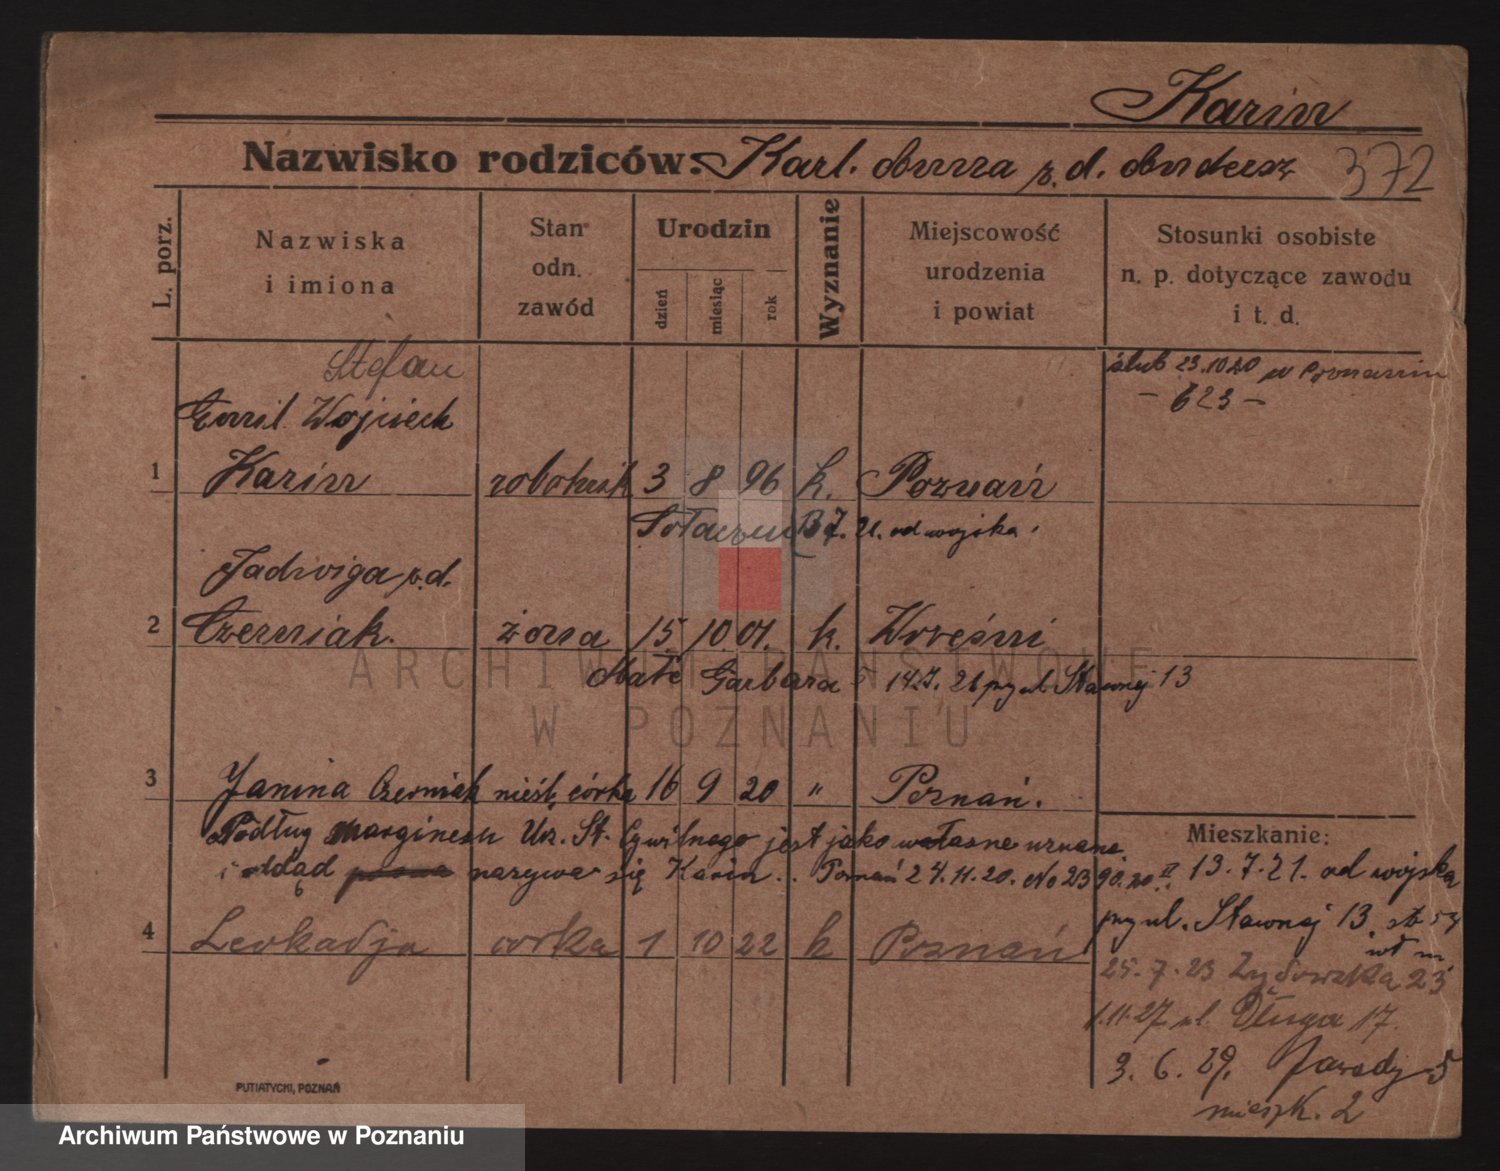 Karin
Nazwisko rodziców: Karl. Anna z. d.
372
L. porz.
Nazwiska i imiona
Stan odn. zawód
Urodzin
dzień
miesiąc
rok
Wyznanie
Miejscowość urodzenia i powiat
Stosunki osobiste n. p. dotyczące zawodu i t. d.
ślub 23.10 20 w Poznaniu
- 623 -
Stefan
Emil Wojciech
1 Karin robotnik 3 8 96 k. Poznań
Sołaczu 13 7. 21. od wojska
Jadwiga z. d.
2 Czerniak. żona 15. 10. 01. k. Wrześni
Małe Garbara 5 14.7. 21 przy ul. Stawnej 13
3 Janina Czerniak nieśl. córka 16 9 20 " Poznań.
Podług marginesu Urz. St. Cywilnego jest jako własne uznane
i odtąd nazywa się Karin. Poznań 24.11.20. No 2390.20
4 Leokadja córka 1 10 22 k Poznań
Mieszkanie:
13.7.21. od wojska
przy ul. Stawnej 13.
25.7.23 Żydowska 23
1.11.27 ul. Długa 17.
3. 6. 29. Zawady 5
mieszk. 2
PUTIATYCKI, POZNAŃ
ARCHIWUM PAŃSTWOWE
W POZNANIU
Archiwum Państwowe w Poznaniu